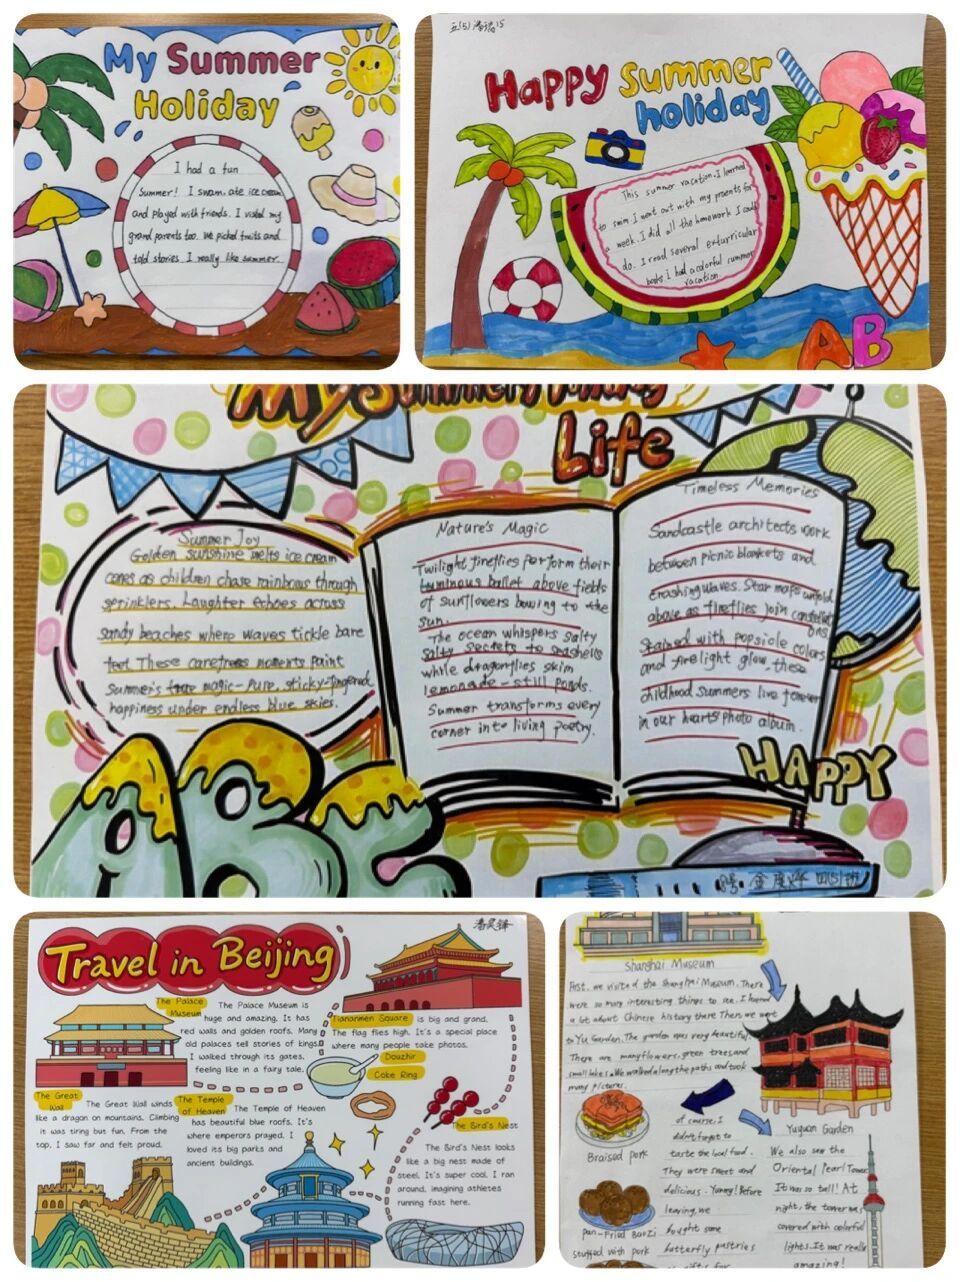 My Summer
Holiday
I had a fun
Summer! I swam, ate ice cream
and played with friends. I visited my
grand parents too. We picked fruits and
told stories. I really like summer.
五(5) 15
Happy Summer
holiday
This summer vacation, I learned
to swim I went out with my parents for
a week. I did all the homework I could
do. I read several exturricular
books i had a colorful summer
vacation.
AB
My Summer Holiday
Life
Summer Joy
Golden sunshine melts ice cream
cones as children chase rainbows through
sprinklers. Laughter echoes across
sandy beaches where waves tickle bare
feet These carefress moments paint
Summer's true magic-pure, sticky-fingered
happiness under endless blue skies.
Nature's Magic
Twilight fireflies perform their
luminous ballet above fields
of sunflowers bowing to the
sun.
The ocean whispers salty
salty secrets to seashells
while dragonflies skim
lemonade-still ponds.
Summer transforms every
corner into living poetry.
Timeless Memories
Sandcastle architects work
between picnic blankets and
crashing waves. Star maps unfold
above as fireflies join constellati
ons
Stained with popsicle colors
and firelight glow, these
childhood summers live forever
in our hearts' photo album.
HAPPY
ABC
8号 金 四(5)班
Travel in Beijing
The Palace
Museum
The Palace Museum is
huge and amazing. It has
red walls and golden roofs. Many
old palaces tell stories of kings.
I walked through its gates,
feeling like in a fairy tale.
Tiananmen Square is big and grand.
The flag flies high. It's a special place
where many people take photos.
Douzhir
Coke Ring
The Great
Wall
The Great Wall winds
like a dragon on mountains. Climbing
it was tiring but fun. From the
top, I saw far and felt proud.
The Temple
of Heaven
The Temple of Heaven
has beautiful blue roofs. It's
where emperors prayed. I
loved its big parks and
ancient buildings.
The Bird's Nest
The Bird's Nest looks
like a big nest made of
steel. It's super cool. I ran
around, imagining athletes
running fast here.
Shanghai Museum
First, we visited the Shanghai Museum. There
were so many interesting things to see. I learned
a lot about Chinese history there Then we went
to Yu Garden. The garden was very beautiful.
There are many flowers, green trees and
small lakes. We walked along the paths and took
many pictures.
Braised pork
Of course, I
didn't forget to
taste the local food.
They were sweet and
delicious. Yummy! Before
leaving, we
bought some
butterfly pastries
as gifts for
Pan-Fried Baozi
stuffed with pork
Yuyuan Garden
We also saw the
Oriental Pearl Tower.
It was so tall! At
night, the tower was
covered with colorful
lights. It was really
amazing!